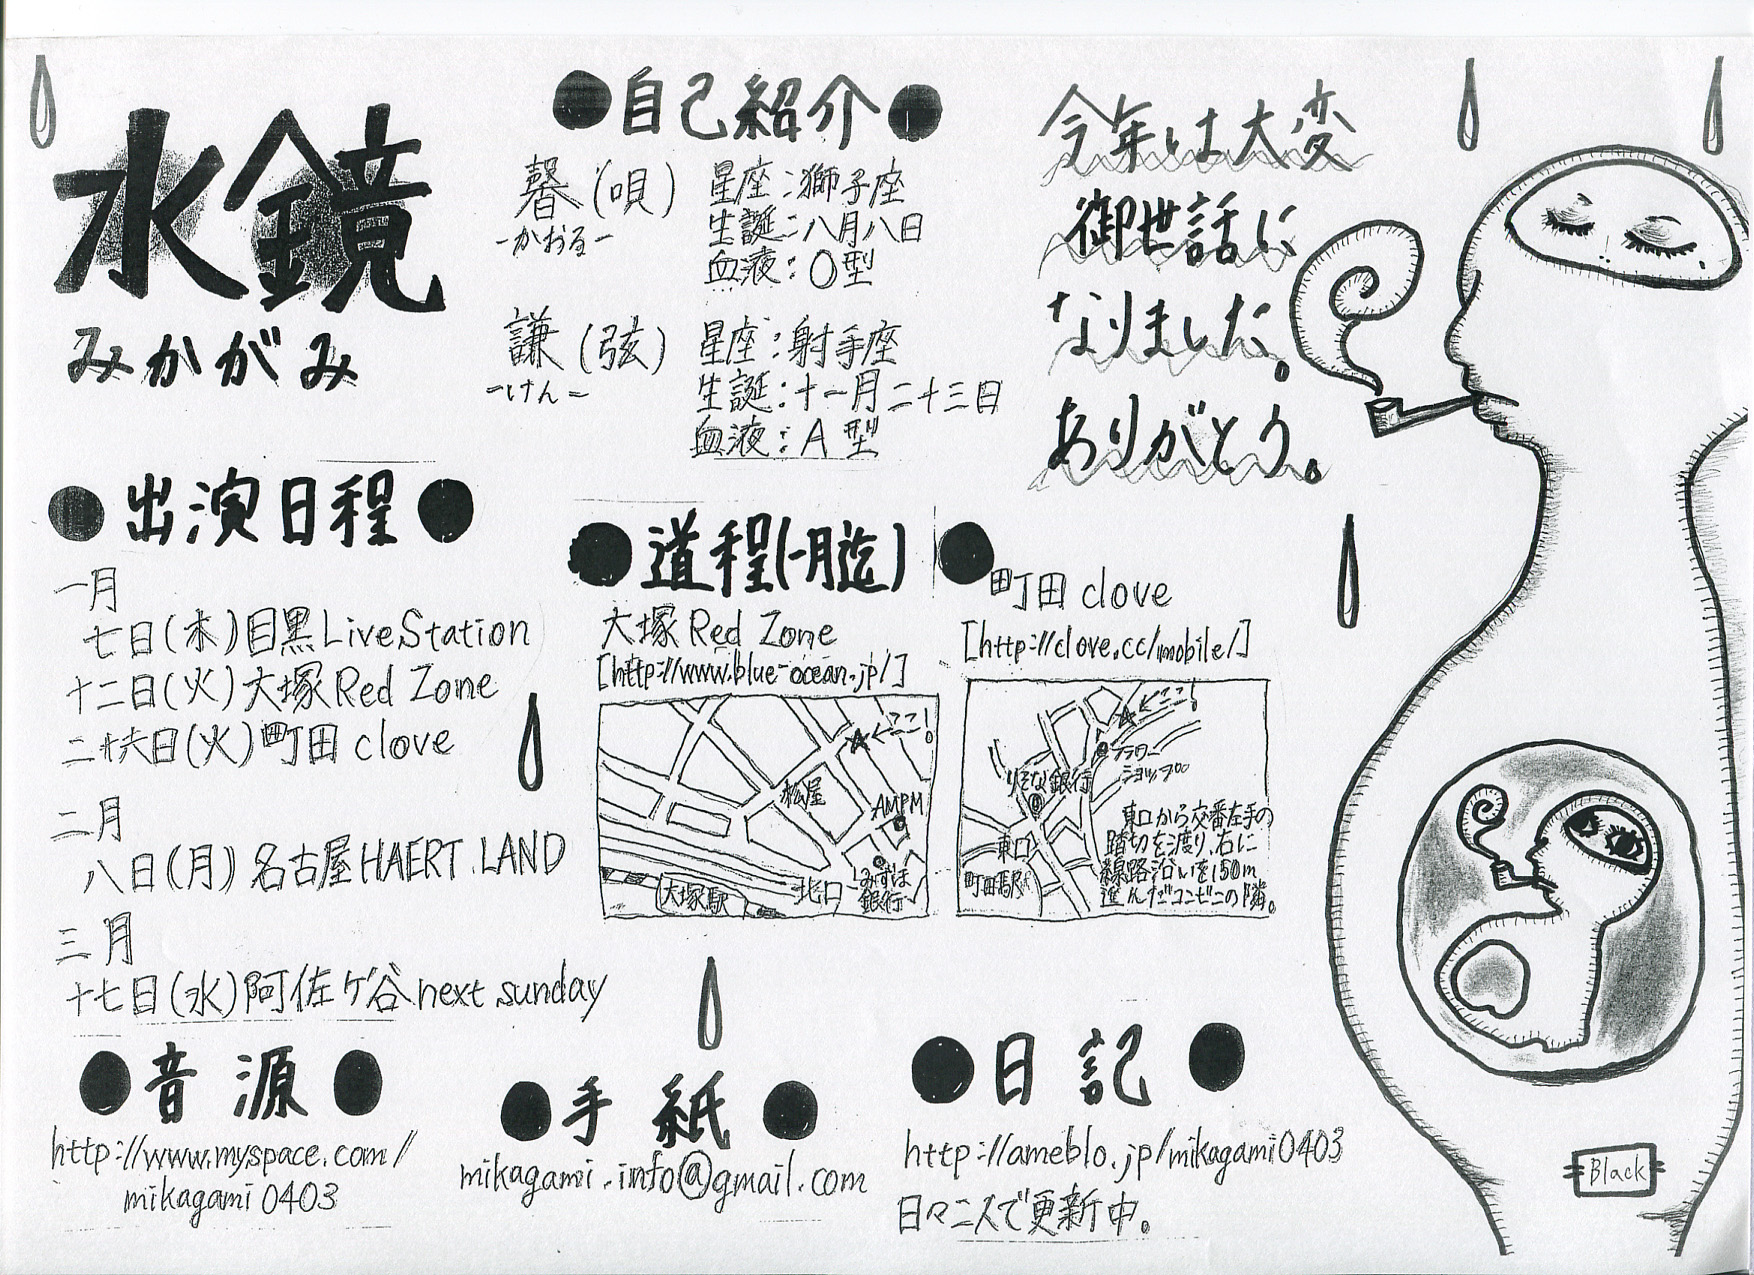 水鏡
みかがみ
●自己紹介●
馨(唄)
-かおる-
星座:獅子座
生誕:八月八日
血液:O型
謙(弦)
-けん-
星座:射手座
生誕:十一月二十三日
血液:A型
今年は大変
御世話に
なりました。
ありがとう。
●出演日程●
一月
七日(木)目黒LiveStation
十二日(火)大塚Red Zone
二十六日(火)町田clove
二月
八日(月)名古屋HAERT LAND
三月
十七日(水)阿佐ケ谷next sunday
●道程(一月迄)●
大塚Red Zone
[http://www.blue-ocean.jp/]
←ここ!
松屋
AMPM
みずほ
銀行
北口
大塚駅
町田clove
[http://clove.cc/mobile/]
←ここ!
フラワー
ショップ
りそな銀行
東口
町田駅
東口から交番左手の
踏切を渡り、右に
線路沿いを150m
進んだコンビニの隣。
●音源●
http://www.myspace.com/
mikagami0403
●手紙●
mikagami.info@gmail.com
●日記●
http://ameblo.jp/mikagami0403
日々二人で更新中。
Black